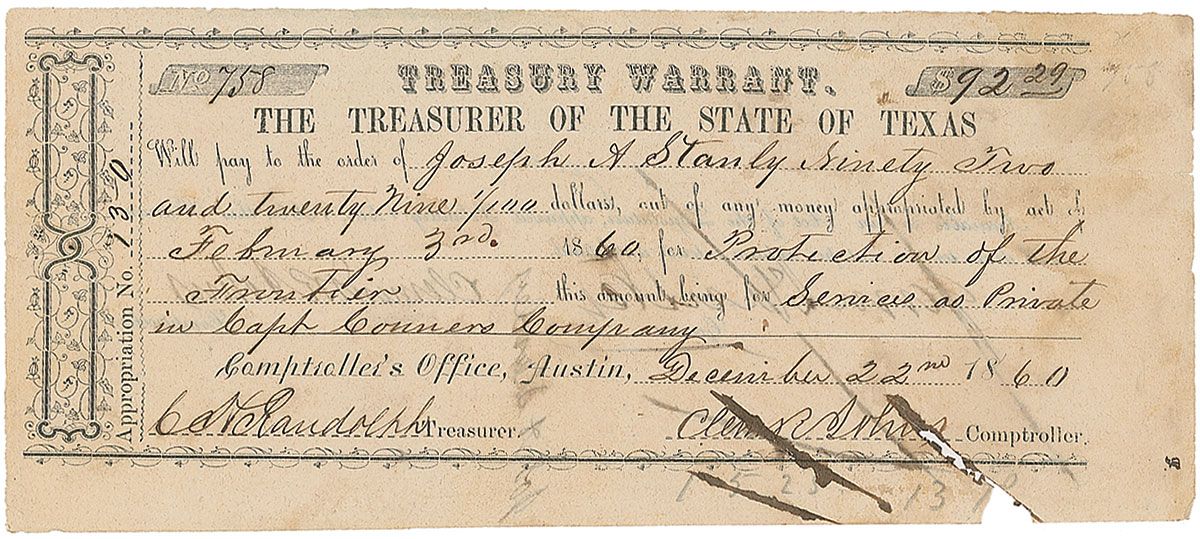 No 758 TREASURY WARRANT. $92 29
THE TREASURER OF THE STATE OF TEXAS
Will pay to the order of Joseph A Stanly Ninety Two
and twenty Nine 1/100 dollars, out of any money appropriated by act of
February 3rd. 1860, for Protection of the
Frontier this amount being for Services as Private
in Capt Conners Company
Comptroller's Office, Austin, December 22nd 1860
C H Randolph Treasurer. Clem R Johns Comptroller.
Appropriation No. 130